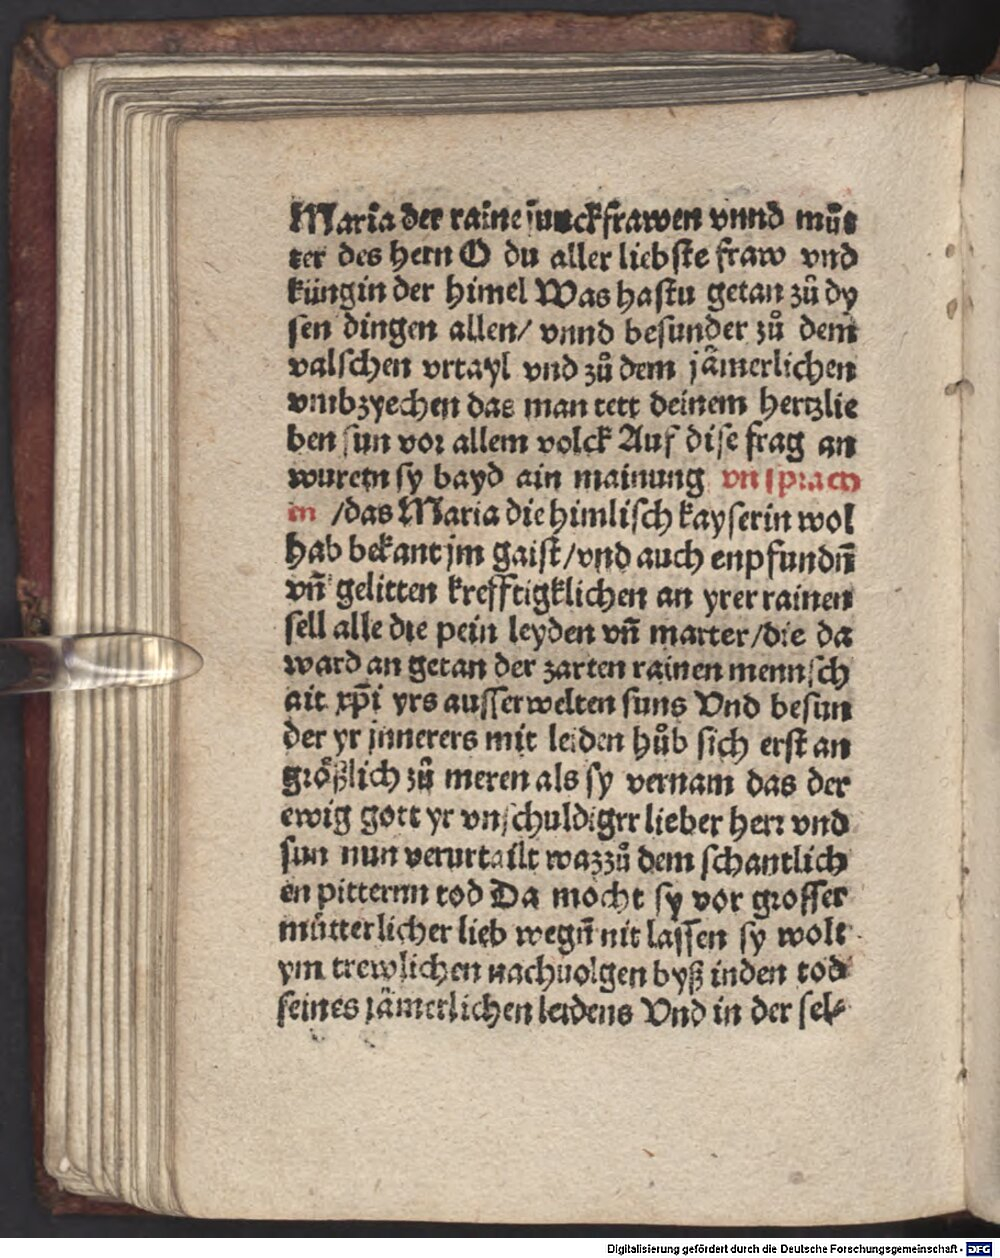 Maria der raine junckfrawen vnnd můt
ter des hern O du aller liebste fraw vnd
küngin der himel Was hastu getan zů dy
sen dingen allen/ vnnd besunder zů dem
valschen vrtayl vnd zů dem jämerlichen
vmbzyechen das man tett deinem hertzlie
ben sun vor allem volck Auf dise frag an
wuretn sy bayd ain mainung vn sprach
en /das Maria die himlisch kayserin wol
hab bekant jm gaist/vnd auch enpfundn̄
vn̄ gelitten krefftigklichen an yrer rainen
sell alle die pein leyden vn̄ marter/die da
ward an getan der zarten rainen mennsch
ait xp̄i yrs ausserwelten suns Vnd besun
der yr jnnerers mit leiden hůb sich erst an
größlich zů meren als sy vernam das der
ewig gott yr vnschuldigrr lieber herr vnd
sun nun verurtailt waz zů dem schantlich
en pitternn tod Da mocht sy vor grosser
mütterlicher lieb wegn̄ nit lassen sy wolt
ym trewlichen nachuolgen byß inden tod
seines jämerlichen leidens Vnd in der sel-
Digitalisierung gefördert durch die Deutsche Forschungsgemeinschaft - DFG